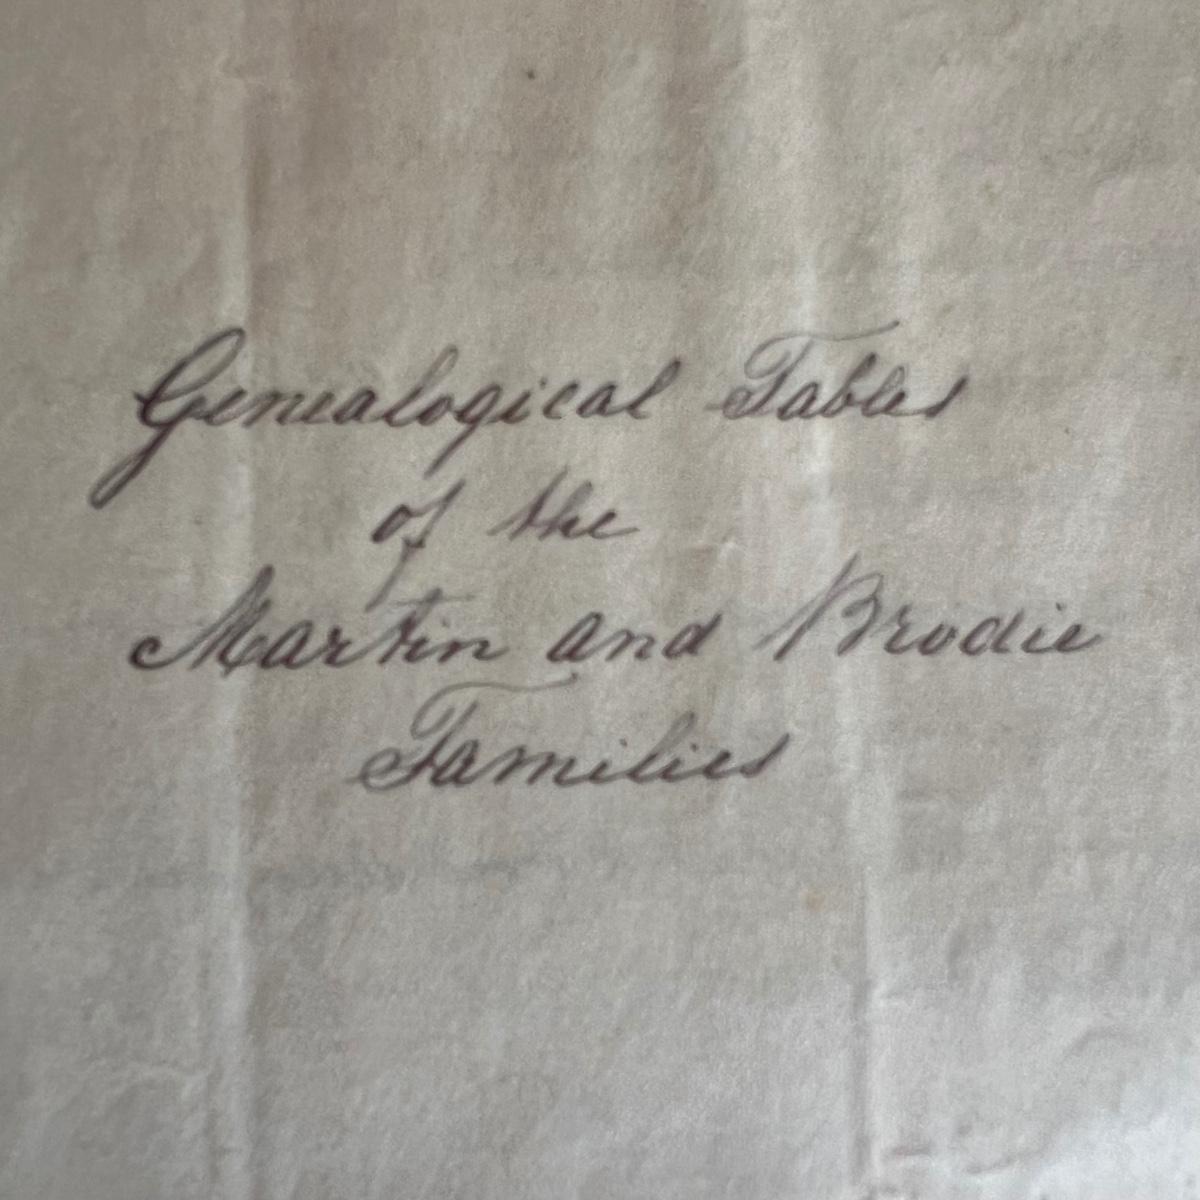 Genealogical Tables
of the
Martin and Brodie
Families